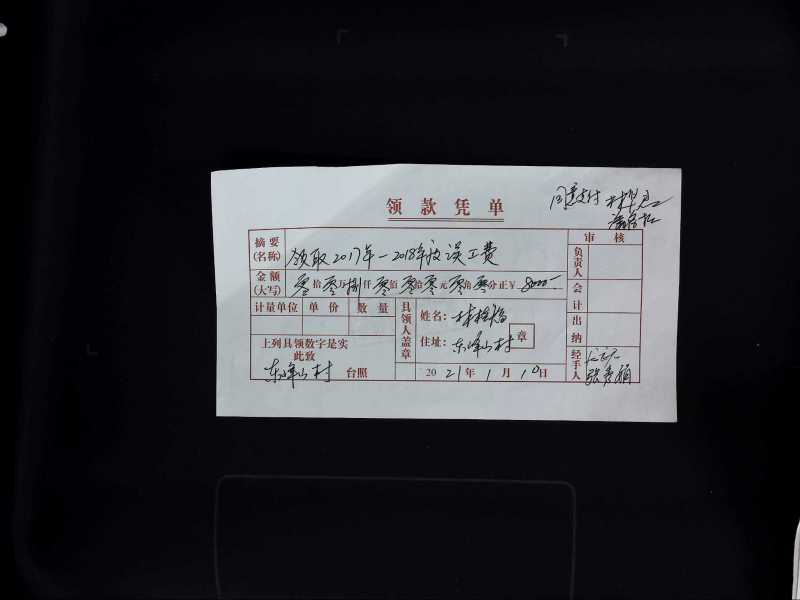 领款凭单
同意支付
摘要(名称) 领取2017年-2018年度误工费
金额(大写) 零拾零万捌仟零佰零拾零元零角零分正¥ 8000-
计量单位 单价 数量
上列具领数字是实
此致
东峰山村 台照
具领人盖章
姓名:
住址: 东峰山村 章
2021年1月10日
审核
负责人
会计
出纳
经手人